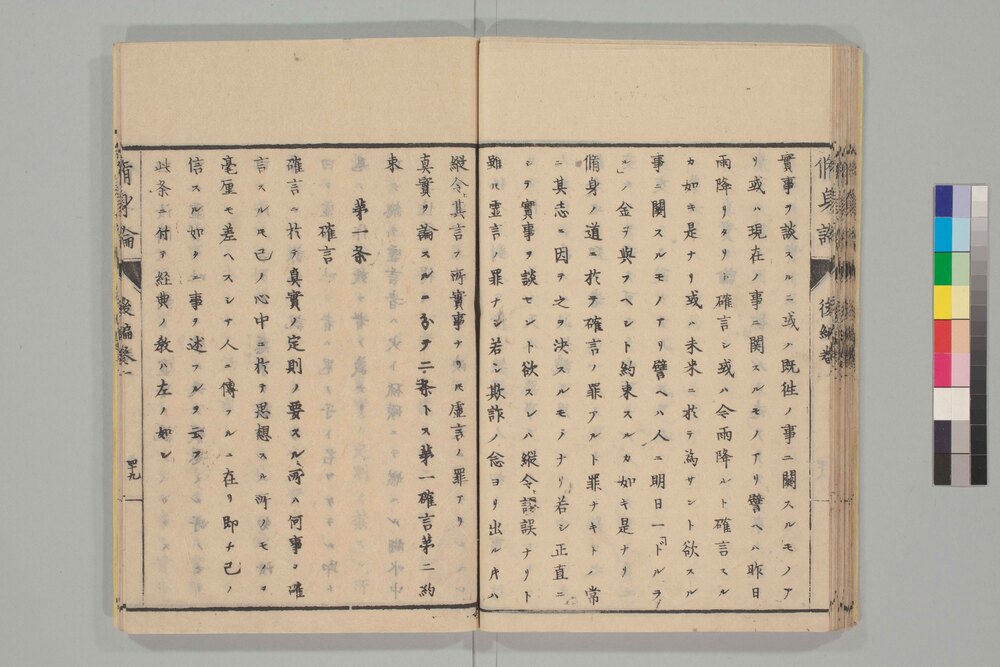 實事ヲ談スルニ或ハ既徃ノ事ニ關スルモノア
リ或ハ現在ノ事ニ関スルモノアリ譬ヘハ昨日
雨降リタリト確言シ或ハ今雨降ルト確言スル
カ如キ是ナリ或ハ未来ニ於テ為サント欲スル
事ニ関スルモノアリ譬ヘハ人ニ明日一「ドルラ
ル」ノ金ヲ與フヘシト約束スルカ如キ是ナリ
脩身ノ道ニ於テ確言ノ罪アルト罪ナキトハ常
ニ其志ニ因テ之ヲ決スルモノナリ若シ正直ニ
シテ實事ヲ談セント欲スレハ縦令誤ナリト
雖𪜈霊言ノ罪ナシ若シ欺詐ノ念ヨリ出ルキハ
縦令其言フ所實事ナリ𪜈虚言ノ罪アリ
真實ヲ論スルニ分テ二条トス第一確言第二約
束
第一条
確言
確言ニ於テ真實ノ定則ノ要スル所ハ何事ヲ確
言スルモ己ノ心中ニ於テ思想スル所ノモノヲ
毫厘モ差ヘスシテ人ニ傳フルニ在リ即チ己ノ
信スル如クニ事ヲ述フルヲ云フ
此条ニ付テ経典ノ教ハ左ノ如シ
脩身論
後編巻一
四十九